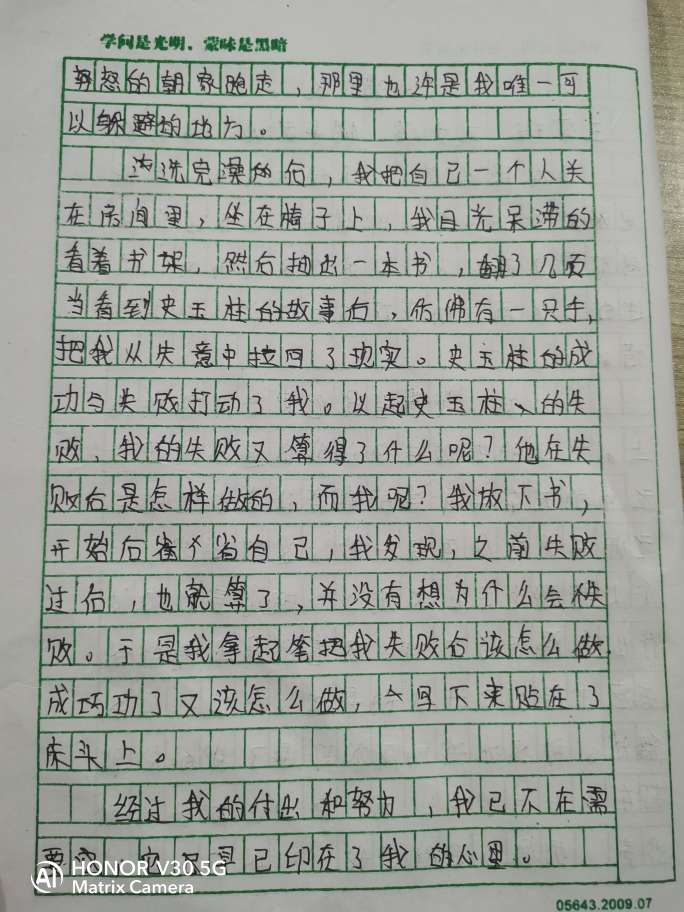 学问是光明，蒙昧是黑暗
努怒的朝家跑走，那里也许是我唯一可
以躲避的地方。
洗完澡的后，我把自己一个人关
在房间里，坐在椅子上，我目光呆滞的
看着书架，然后抽出一本书，翻了几页
当看到史玉柱的故事后，仿佛有一只手，
把我从失意中拉回了现实。史玉柱的成
功与失败打动了我。以起史玉柱、的失
败、我的失败又算得了什么呢？他在失
败后是怎样做的，而我呢？我放下书，
开始后省自己，我发现，之前失败
过后，也就算了，并没有想为什么会秩
败。于是我拿起笔把我失败后该怎么做
成巧功了又该怎么做，写下来贴在了
床头上。
经过我的付出和努力，我已不在需
要它，已印在了我的心里。
HONOR V30 5G
Matrix Camera
05643.2009.07